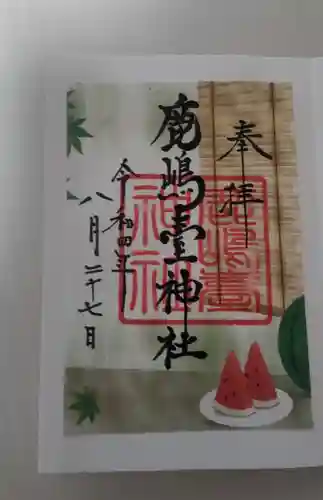 奉拝
鹿嶋臺神社
令和四年
八月二十七日
鹿嶋臺神社